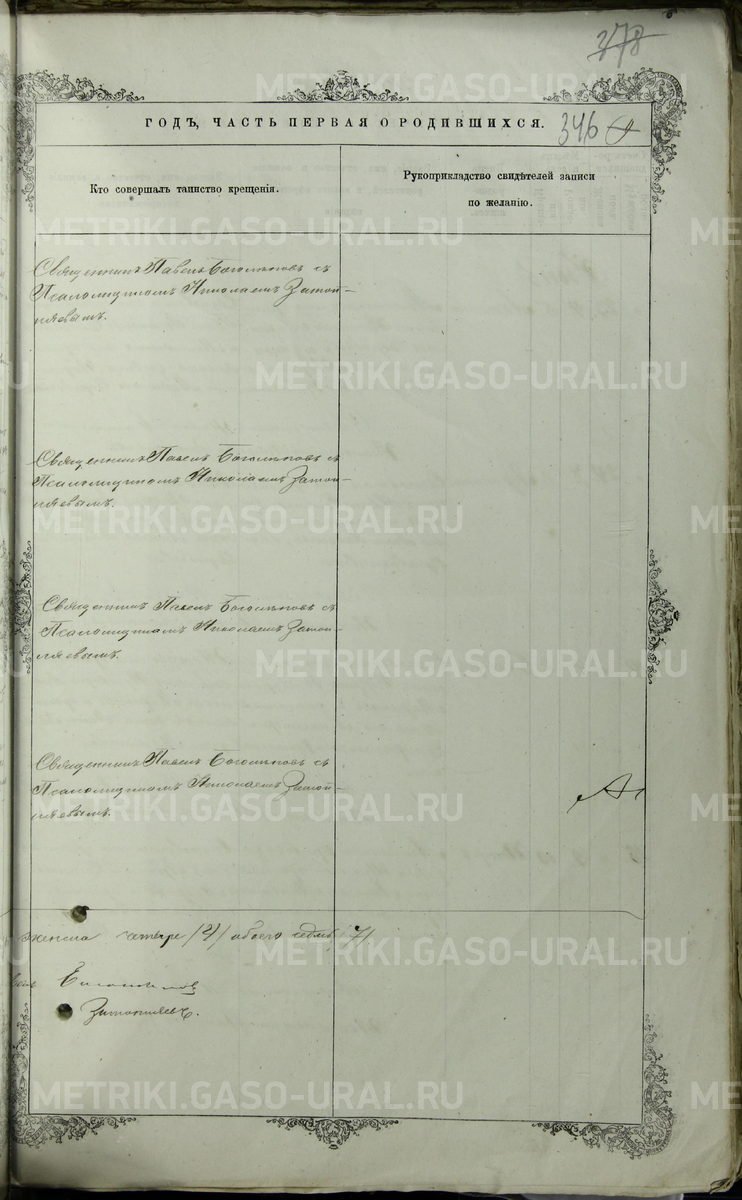 378
METRIKI.GASO-URAL.RU
ГОДЪ, ЧАСТЬ ПЕРВАЯ О РОДИВШИХСЯ.
346
Кто совершалъ таинство крещенія.
Рукоприкладство свидѣтелей записи
по желанію.
METRIKI.GASO-URAL.RU
Священникъ Павелъ Боголѣповъ съ
Псаломщикомъ Николаемъ Затоп-
ляевымъ.
METRIKI.GASO-URAL.RU
Священникъ Павелъ Боголѣповъ съ
Псаломщикомъ Николаемъ Затоп-
ляевымъ.
METRIKI.GASO-URAL.RU
Священникъ Павелъ Боголѣповъ съ
Псаломщикомъ Николаемъ Затоп-
ляевымъ.
METRIKI.GASO-URAL.RU
Священникъ Павелъ Боголѣповъ съ
Псаломщикомъ Николаемъ Затоп-
ляевымъ.
METRIKI.GASO-URAL.RU
женска четыре /4/ обоего седмь /7/
Боголѣповъ
Затопляевъ.
METRIKI.GASO-URAL.RU